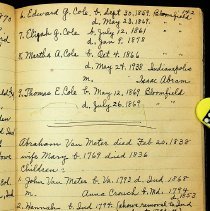 6. Edward G. Cole b. Sept 30, 1859. Bloomfield
d. May 23, 1867.
7. Elijah G. Cole b. July 12, 1861 " "
d. Jan 9, 1878
8. Martha A. Cole b. Oct. 4, 1866 " "
d. May 24, 1938 Indianapolis
m. Isaac Abram
9. Thomas E. Cole b. May 12, 1869 Bloomfield
d. July 26, 1869 "
Abraham Van Meter died Feb 20, 1838
wife Mary b. 1769 died 1836
Children:
1. John Van Meter b. Va. 1792 d. Ind 1868
m. Anna Crouch b. Md. 1794
d. 1853
2. Hannah b. Ind 1794 (above removed to Ind